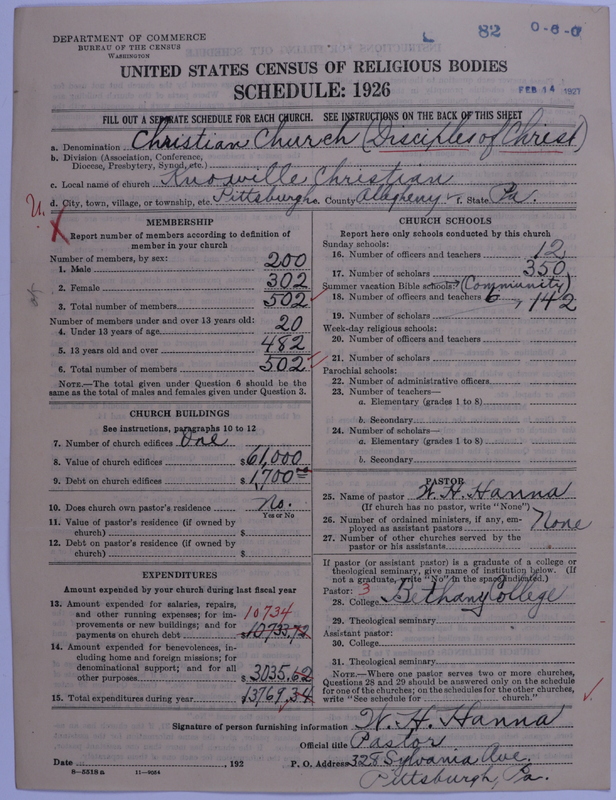 DEPARTMENT OF COMMERCE
BUREAU OF THE CENSUS
WASHINGTON
82
0-6-0
UNITED STATES CENSUS OF RELIGIOUS BODIES
SCHEDULE: 1926
FEB 14 1927
FILL OUT A SEPARATE SCHEDULE FOR EACH CHURCH. SEE INSTRUCTIONS ON THE BACK OF THIS SHEET
a. Denomination Christian Church (Disciples of Christ)
b. Division (Association, Conference,
Diocese, Presbytery, Synod, etc.)
c. Local name of church Knoxville Christian
d. City, town, village, or township, etc. Pittsburgh e. County Allegheny f. State Pa.
MEMBERSHIP
Report number of members according to definition of
member in your church
Number of members, by sex:
1. Male 200
2. Female 302
3. Total number of members 502
Number of members under and over 13 years old:
4. Under 13 years of age 20
5. 13 years old and over 482
6. Total number of members 502
NOTE.—The total given under Question 6 should be the
same as the total of males and females given under Question 3.
CHURCH BUILDINGS
See instructions, paragraphs 10 to 12
7. Number of church edifices One
8. Value of church edifices $61,000
9. Debt on church edifices $1,700
10. Does church own pastor's residence No.
Yes or No
11. Value of pastor's residence (if owned by
church) $
12. Debt on pastor's residence (if owned by
church) $
EXPENDITURES
Amount expended by your church during last fiscal year
13. Amount expended for salaries, repairs,
and other running expenses; for im-
provements or new buildings; and for
payments on church debt 10734
$10733.72
14. Amount expended for benevolences, in-
cluding home and foreign missions; for
denominational support; and for all
other purposes $3035.62
15. Total expenditures during year 13769.34
CHURCH SCHOOLS
Report here only schools conducted by this church
Sunday schools:
16. Number of officers and teachers 12
17. Number of scholars 350
Summer vacation Bible schools: (Community)
18. Number of officers and teachers 6, 142
19. Number of scholars
Week-day religious schools:
20. Number of officers and teachers
21. Number of scholars
Parochial schools:
22. Number of administrative officers
23. Number of teachers—
a. Elementary (grades 1 to 8)
b. Secondary
24. Number of scholars—
a. Elementary (grades 1 to 8)
b. Secondary
PASTOR
25. Name of pastor W. H. Hanna
(If church has no pastor, write "None")
26. Number of ordained ministers, if any, em-
ployed as assistant pastors None
27. Number of other churches served by the
pastor or his assistants
If pastor (or assistant pastor) is a graduate of a college or
theological seminary, give name of institution below. (If
not a graduate, write "No" in the space indicated.)
Pastor: 3
28. College Bethany College
29. Theological seminary
Assistant pastor:
30. College
31. Theological seminary
NOTE.—Where one pastor serves two or more churches,
Questions 28 and 29 should be answered only on the schedule
for one of the churches; on the schedules for the other churches,
write "See schedule for church."
Signature of person furnishing information W. H. Hanna
Official title Pastor
Date , 192 P. O. Address 328 Sylvania Ave.
8-5318a 11-9054 Pittsburgh, Pa.